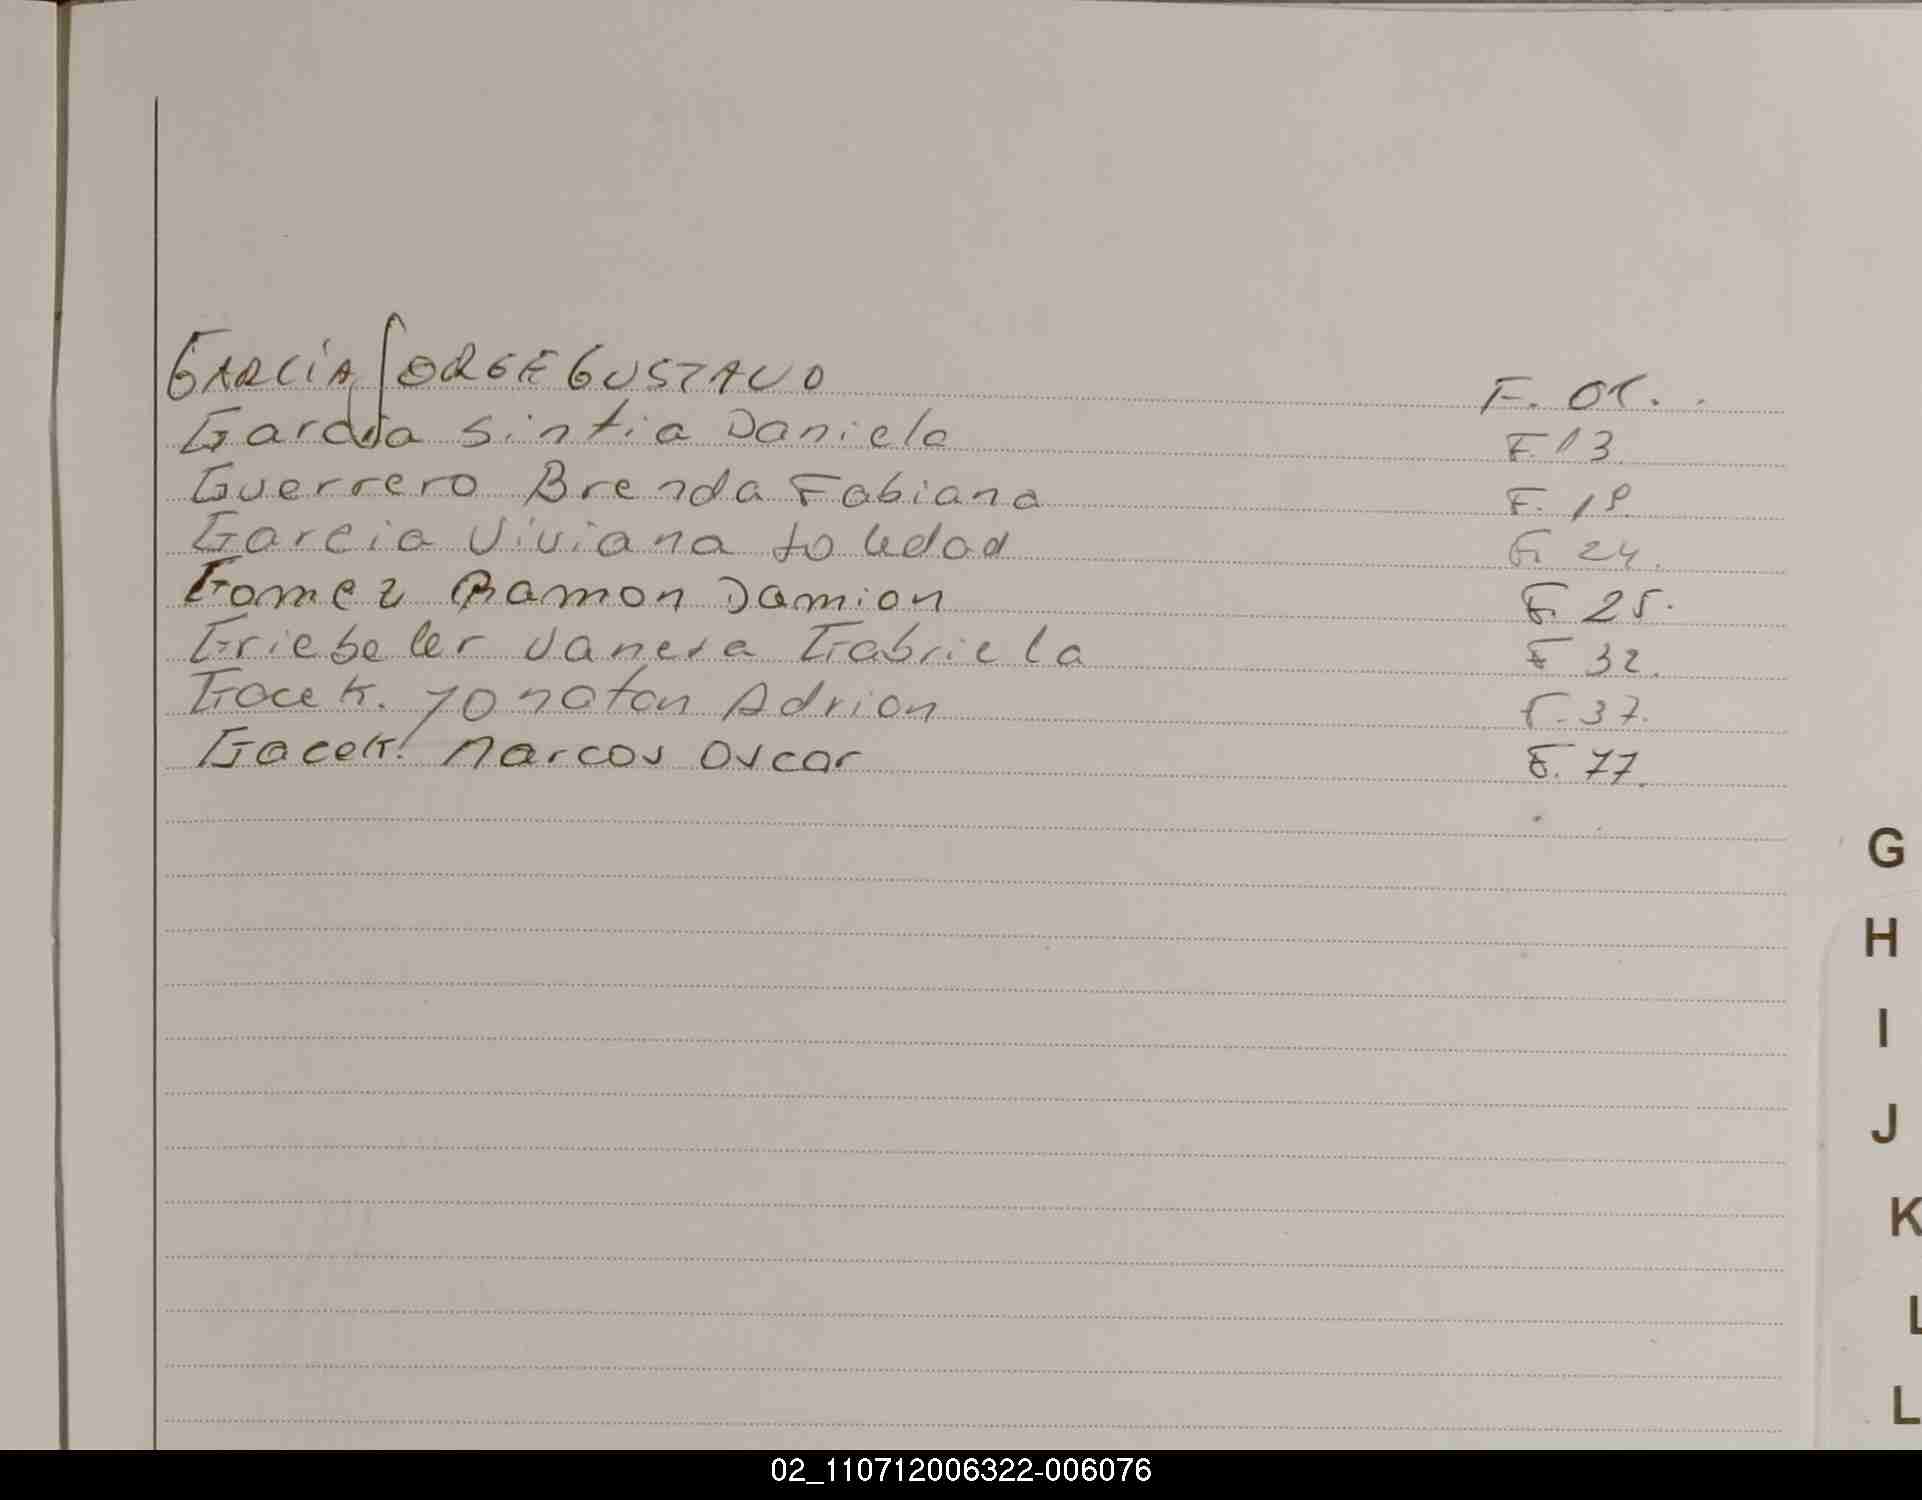 GARCÍA JORGE GUSTAVO F. 01.
Garcia Sintia Daniela F. 13
Guerrero Brenda Fabiana F. 18
Garcia Viviana Soledad F. 24.
Gomez Ramon Damian F. 25.
Griebeler Vanesa Gabriela F 32.
Gacek. Yonatan Adrian F. 37.
Gacek. Marcos Oscar F. 77.
G
H
I
J
K
L
L
02_110712006322-006076